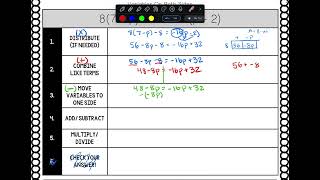 8(7
2)
(x)
1.
DISTRIBUTE
(IF NEEDED)
8(7-p)-8 = -16p
56-8p-8 = -16p+32
8 |56|-8p|
2.
(+)
COMBINE
LIKE TERMS
56-8p-8 = -16p+32
48-8p = -16p+32
56+-8
3.
(-) MOVE
VARIABLES TO
ONE SIDE
48-8p = -16p+32
-(-8p)
4.
ADD/SUBTRACT
5.
MULTIPLY/
DIVIDE
CHECK YOUR
ANSWER!